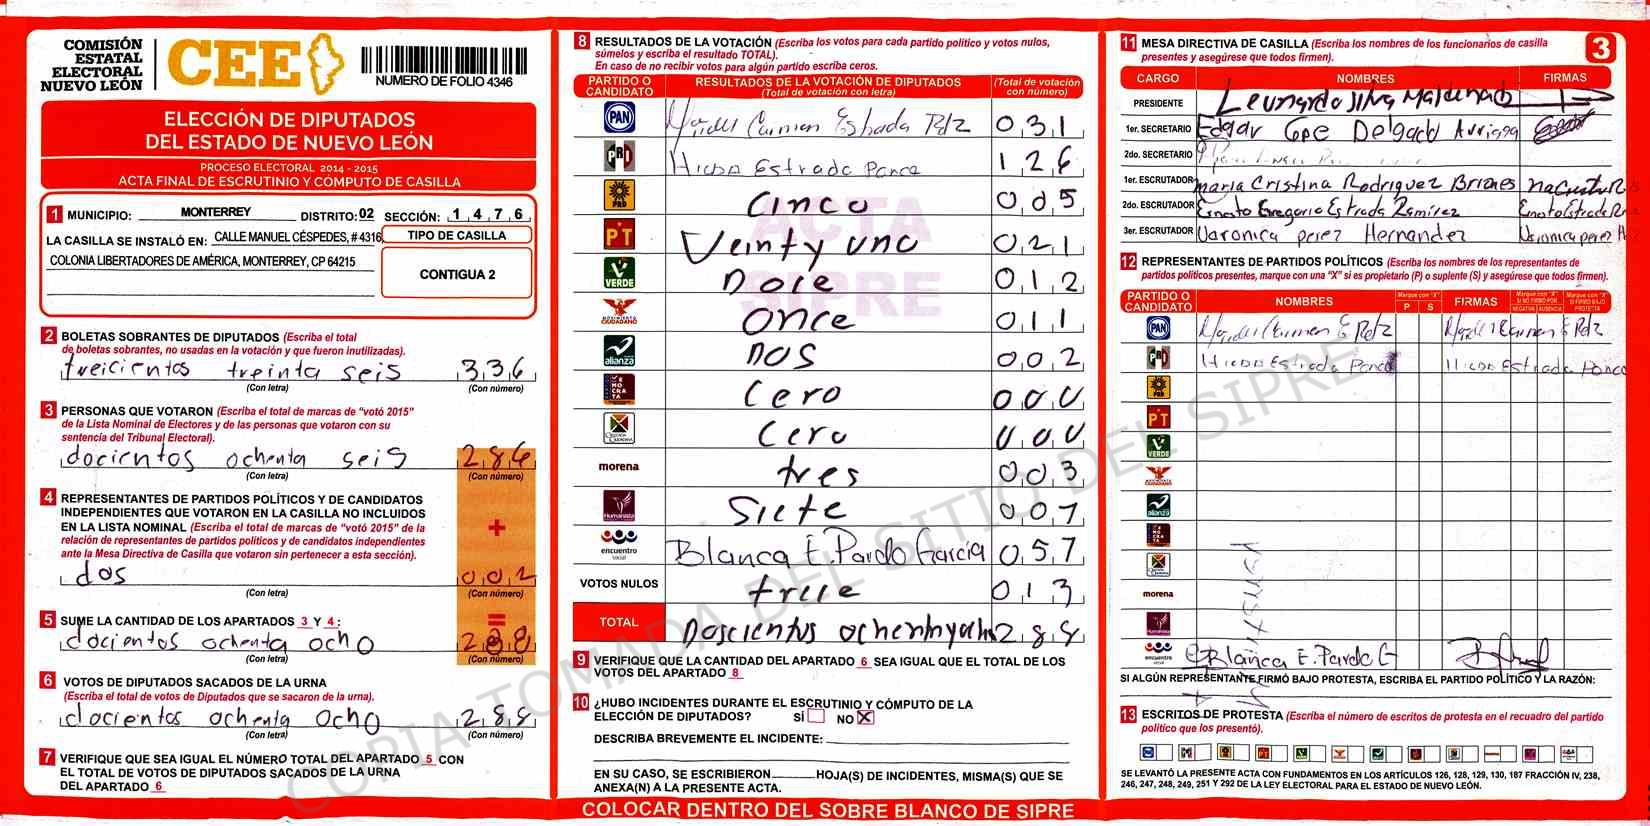 COMISIÓN
ESTATAL
ELECTORAL
NUEVO LEÓN
CEE
NUMERO DE FOLIO 4346
ELECCIÓN DE DIPUTADOS
DEL ESTADO DE NUEVO LEÓN
PROCESO ELECTORAL 2014 - 2015
ACTA FINAL DE ESCRUTINIO Y CÓMPUTO DE CASILLA
1 MUNICIPIO: MONTERREY DISTRITO: 02 SECCIÓN: 1 4 7 6
LA CASILLA SE INSTALÓ EN: CALLE MANUEL CÉSPEDES, # 4316
COLONIA LIBERTADORES DE AMÉRICA, MONTERREY, CP 64215
TIPO DE CASILLA
CONTIGUA 2
2 BOLETAS SOBRANTES DE DIPUTADOS (Escriba el total
de boletas sobrantes, no usadas en la votación y que fueron inutilizadas).
treicientos treinta seis 336
(Con letra) (Con número)
3 PERSONAS QUE VOTARON (Escriba el total de marcas de "votó 2015"
de la Lista Nominal de Electores y de las personas que votaron con su
sentencia del Tribunal Electoral).
docientos ochenta seis 286
(Con letra) (Con número)
4 REPRESENTANTES DE PARTIDOS POLÍTICOS Y DE CANDIDATOS
INDEPENDIENTES QUE VOTARON EN LA CASILLA NO INCLUIDOS
EN LA LISTA NOMINAL (Escriba el total de marcas de "votó 2015" de la
relación de representantes de partidos políticos y de candidatos independientes
ante la Mesa Directiva de Casilla que votaron sin pertenecer a esta sección).
+
dos 002
(Con letra) (Con número)
=
5 SUME LA CANTIDAD DE LOS APARTADOS 3 Y 4:
docientos ochenta ocho 288
(Con letra) (Con número)
6 VOTOS DE DIPUTADOS SACADOS DE LA URNA
(Escriba el total de votos de Diputados que se sacaron de la urna).
docientos ochenta ocho 288
(Con letra) (Con número)
7 VERIFIQUE QUE SEA IGUAL EL NÚMERO TOTAL DEL APARTADO 5 CON
EL TOTAL DE VOTOS DE DIPUTADOS SACADOS DE LA URNA
DEL APARTADO 6
8 RESULTADOS DE LA VOTACIÓN (Escriba los votos para cada partido político y votos nulos,
súmelos y escriba el resultado TOTAL).
En caso de no recibir votos para algún partido escriba ceros.
PARTIDO O CANDIDATO
RESULTADOS DE LA VOTACIÓN DE DIPUTADOS
(Total de votación con letra)
(Total de votación con número)
PAN Carmen Estrada 031
PRD Hilda Estrada Ponce 126
PRD Cinco 005
PT Veinty uno 021
VERDE Doce 012
MOVIMIENTO CIUDADANO Once 011
alianza DOS 002
DEMOCRATA Cero 000
Cero 000
morena tres 003
Humanista Siete 007
encuentro social Blanca E. Pardo García 057
VOTOS NULOS trece 013
TOTAL Doscientos 288
9 VERIFIQUE QUE LA CANTIDAD DEL APARTADO 6 SEA IGUAL QUE EL TOTAL DE LOS
VOTOS DEL APARTADO 8
10 ¿HUBO INCIDENTES DURANTE EL ESCRUTINIO Y CÓMPUTO DE LA
ELECCIÓN DE DIPUTADOS? SÍ NO X
DESCRIBA BREVEMENTE EL INCIDENTE:
EN SU CASO, SE ESCRIBIERON HOJA(S) DE INCIDENTES, MISMA(S) QUE SE
ANEXA(N) A LA PRESENTE ACTA.
COLOCAR DENTRO DEL SOBRE BLANCO DE SIPRE
ACTA
SIPRE
COPIA TOMADA DEL SITIO DEL SIPRE
11 MESA DIRECTIVA DE CASILLA (Escriba los nombres de los funcionarios de casilla
presentes y asegúrese que todos firmen).
3
CARGO NOMBRES FIRMAS
PRESIDENTE Leonardo silva Maldonado
1er. SECRETARIO Edgar Gpe Delgado
2do. SECRETARIO
1er. ESCRUTADOR maria Cristina Rodriguez Briones
2do. ESCRUTADOR Ernesto Gregorio Estrada Ramirez
3er. ESCRUTADOR Veronica perez Hernandez Veronica perez H
12 REPRESENTANTES DE PARTIDOS POLÍTICOS (Escriba los nombres de los representantes de
partidos políticos presentes, marque con una "X" si es propietario (P) o suplente (S) y asegúrese que todos firmen).
PARTIDO O CANDIDATO
NOMBRES
Marque con "X"
P S
FIRMAS
Marque con "X" SI NO FIRMÓ POR
NEGATIVA AUSENCIA
Marque con "X" SI FIRMÓ BAJO PROTESTA
PAN Carmen E
PRD Hilda Estrada Ponce Hilda Estrada Ponce
PRD
PT
VERDE
alianza
morena
Humanista
encuentro social Blanca E. Pardo G
SI ALGÚN REPRESENTANTE FIRMÓ BAJO PROTESTA, ESCRIBA EL PARTIDO POLÍTICO Y LA RAZÓN:
13 ESCRITOS DE PROTESTA (Escriba el número de escritos de protesta en el recuadro del partido
político que los presentó).
SE LEVANTÓ LA PRESENTE ACTA CON FUNDAMENTOS EN LOS ARTÍCULOS 126, 128, 129, 130, 187 FRACCIÓN IV, 238,
246, 247, 248, 249, 251 Y 292 DE LA LEY ELECTORAL PARA EL ESTADO DE NUEVO LEÓN.